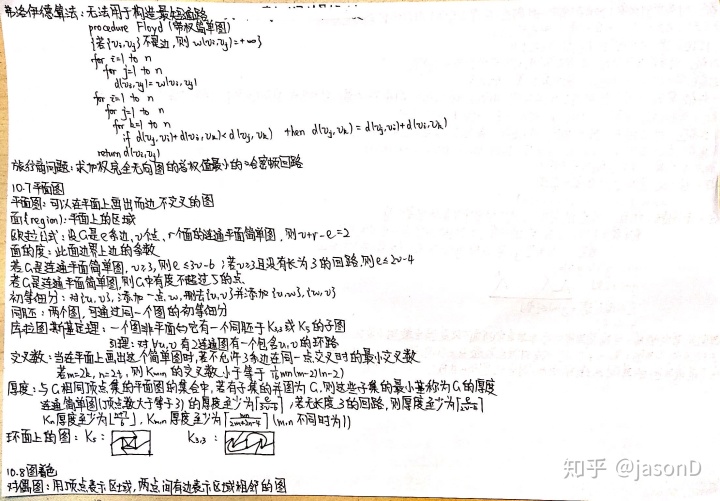 弗洛伊德算法：无法用于构造最短通路
procedure Floyd (带权简单图)
{若{vi,vj}不是边,则 w(vi,vj)=+∞}
for i=1 to n
for j=1 to n
d(vi,vj)=w(vi,vj)
for i=1 to n
for j=1 to n
for k=1 to n
if d(vj,vi)+d(vi,vk)<d(vj,vk) then d(vj,vk)=d(vj,vi)+d(vi,vk)
return d(vi,vj)
旅行商问题：求加权完全无向图的总权值最小的哈密顿回路
10.7平面图
平面图：可以在平面上画出而边不交叉的图
面(region):平面上的区域
欧拉公式：设G是e条边,v个点,r个面的连通平面简单图,则v+r-e=2
面的度：此面边界上边的条数
若G是连通平面简单图,v≥3,则e≤3v-6；若v≥3且没有长为3的回路,则e≤2v-4
若G是连通平面简单图,则G中有度不超过5的点
初等细分：对{u,v},添加一点w,删去{u,v}并添加{u,w},{w,v}
同胚：两个图,可通过同一个图的初等细分
库拉图斯基定理：一个图非平面⇔它有一个同胚于K3,3或K5的子图
引理：对∀u,v 有2连通图有一个包含u,v的环路
交叉数：当在平面上画出这个简单图时,若不允许3条边在同一点交叉时的最小交叉数
若m=2k, n=2t,则Km,n的交叉数小于等于 1/16 mn(m-2)(n-2)
厚度：与G相同顶点集的平面图的集合中,若有子集的并图为G,则这些子集的最小基称为G的厚度
连通简单图(顶点数大于等于3)的厚度至少为⌈e/(3v-6)⌉；若无长度3的回路,则厚度至少⌈e/(2v-4)⌉
Kn厚度至少为⌊(n+7)/6⌋, Km,n厚度至少为⌈mn/(2m+2n-4)⌉(m,n不同时为1)
环面上的图：K5： K3,3：
10.8图着色
对偶图：用顶点表示区域,两点间有边表示区域相邻的图
知乎 @jasonD